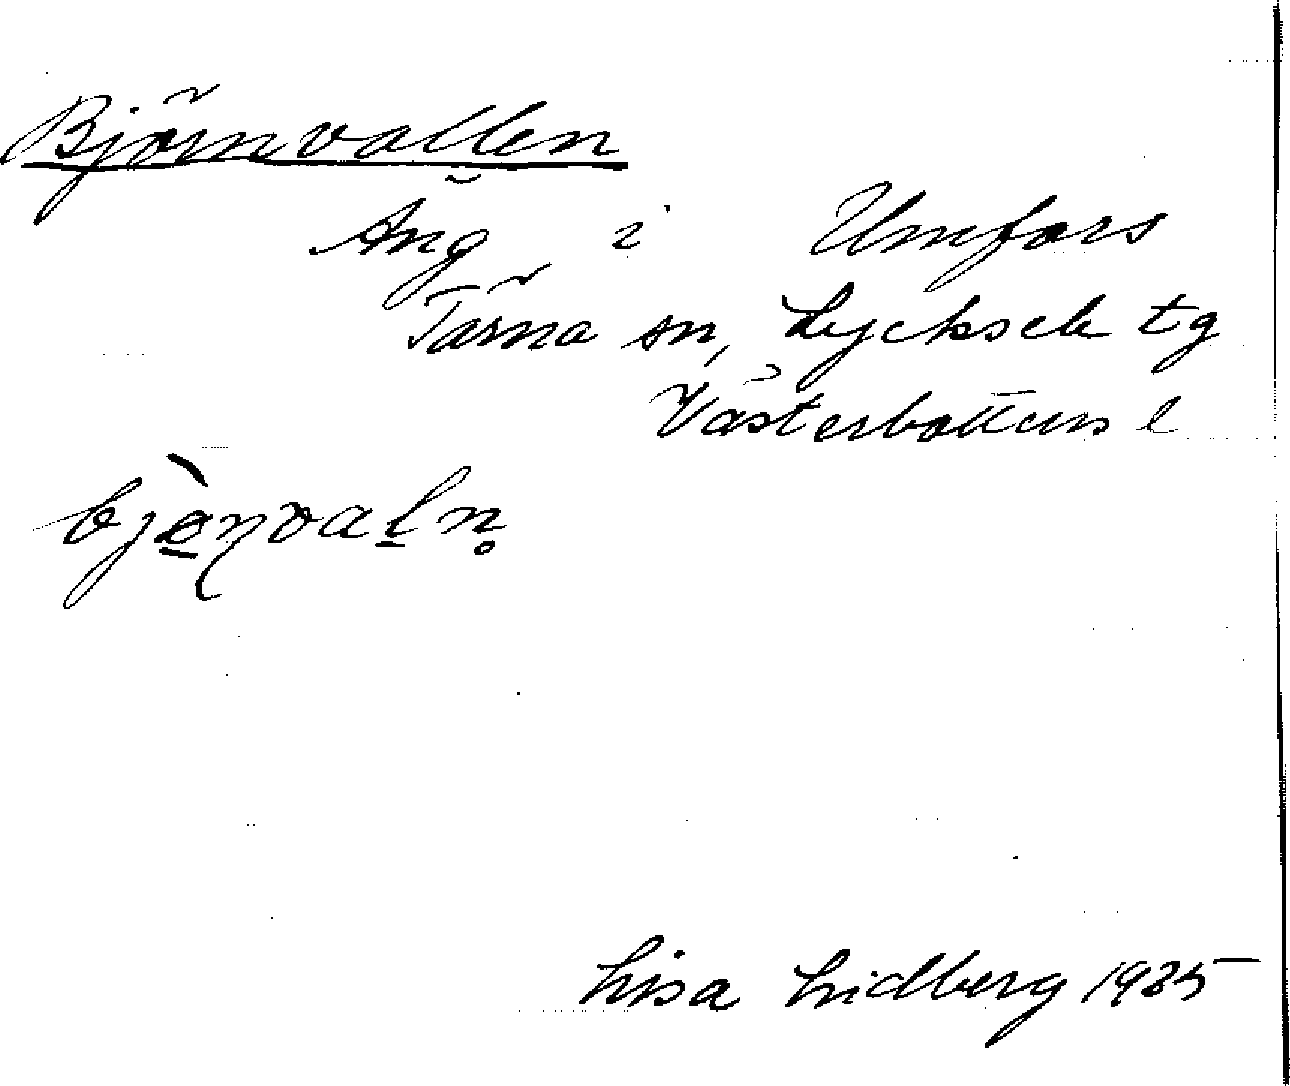 Björnvallen
Äng i Umfors
Tärna sn, Lycksele tg
Västerbottens l
Lisa Lidberg 1935